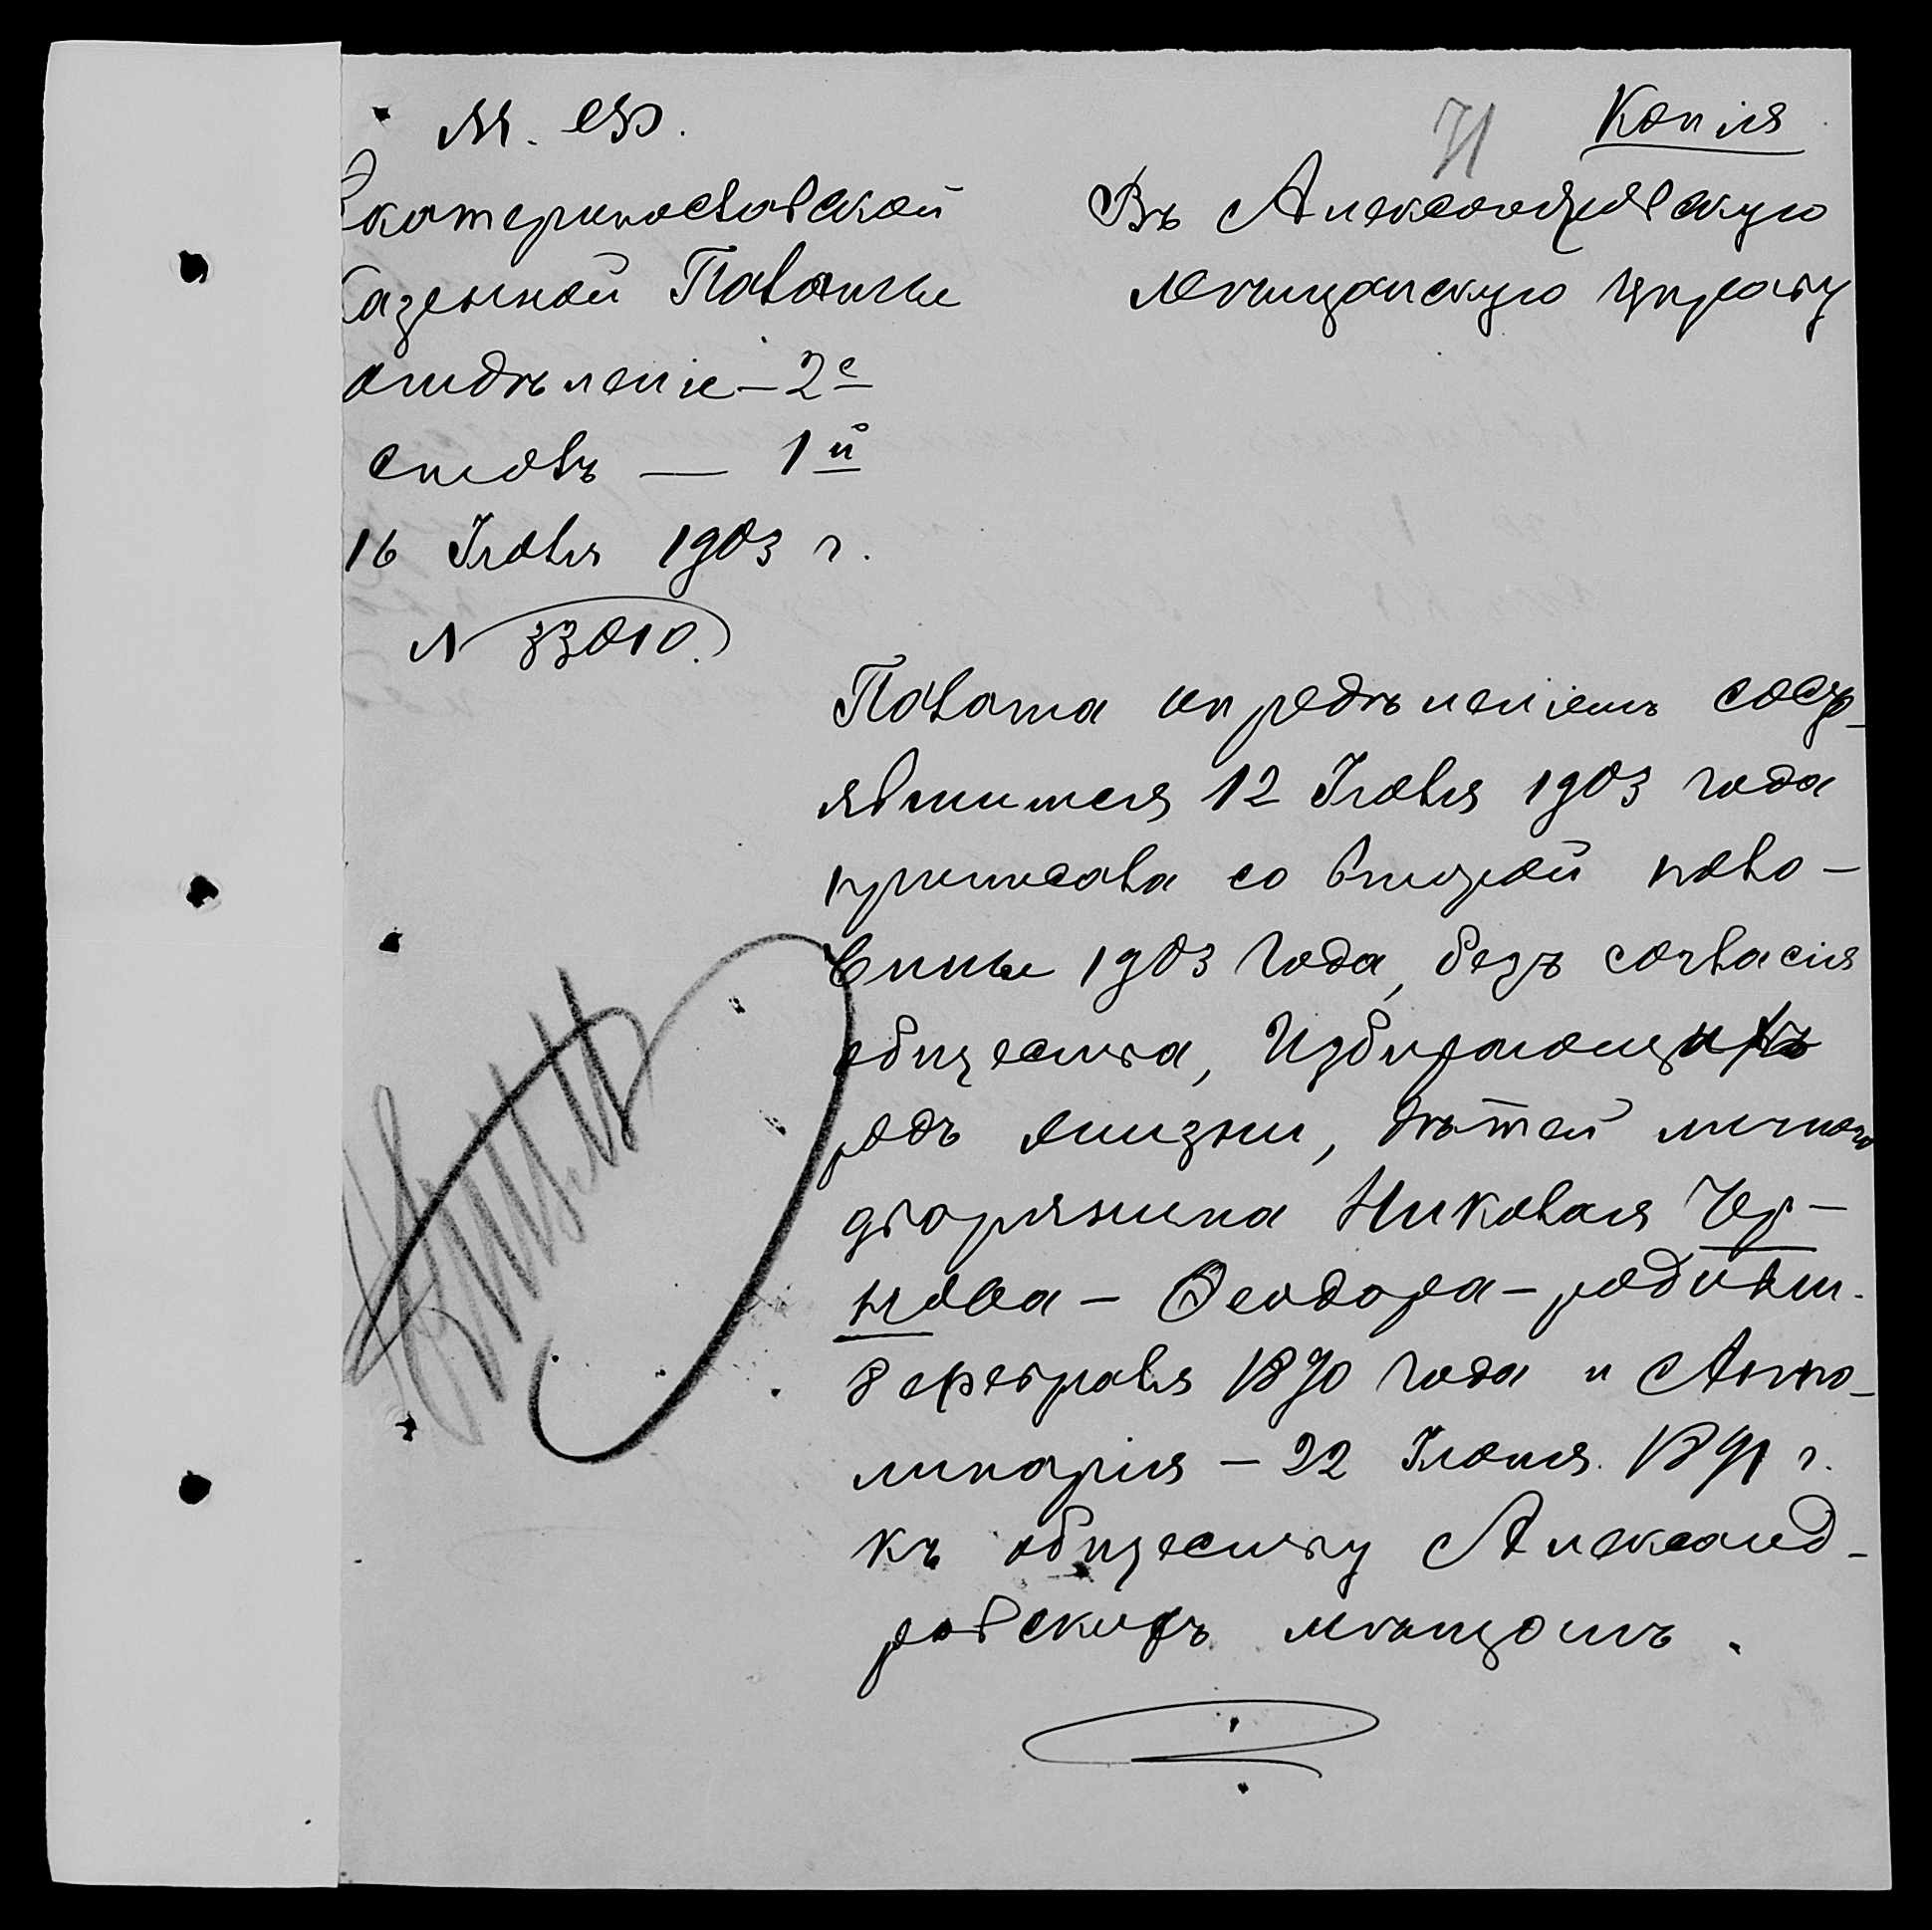 М. Ф.
Екатеринославской
Казенной Палаты
отдѣленіе — 2е
столъ — 1й
16 Іюля 1903 г.
№ 33010.
71
Копія
Въ Александровскую
Мѣщанскую Управу
Палата опредѣленіемъ состо-
явшимся 12 Іюля 1903 года
причислила со второй поло-
вины 1903 года, безъ согласія
общества, Избирающихъ
родъ жизни, дѣтей личнаго
дворянина Николая Чер-
нова — Ѳеодора — родивш.
8 февраля 1890 года и Апо-
линарія — 22 Іюня 1891 г.
къ обществу Александ-
ровскихъ мѣщанъ.